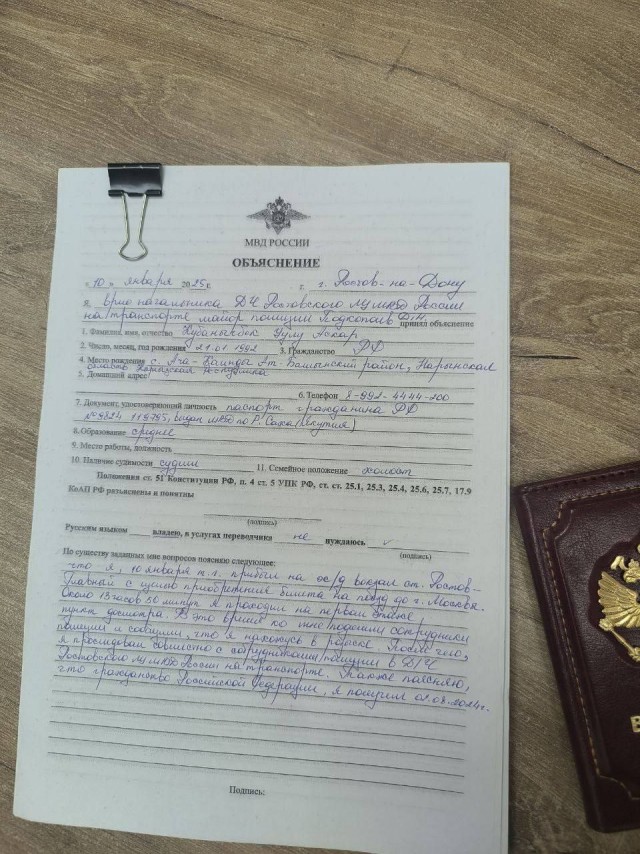 МВД РОССИИ
ОБЪЯСНЕНИЕ
«10» января 2025 г. г. г. Ростов-на-Дону
Я, врио начальника ДЧ Ростовского ЛУ МВД России
на транспорте майор полиции принял объяснение
1. Фамилия, имя, отчество Кубанычбек Уулу Аскар
2. Число, месяц, год рождения 21.01.1992 3. Гражданство РФ
4. Место рождения с. Ача-Каинды Ат-Башынский район, Нарынская
область Кыргызская Республика
5. Домашний адрес
6. Телефон 8-992-4444-200
7. Документ, удостоверяющий личность паспорт гражданина РФ
№9824 119795, выдан МВД по Р. Саха (Якутия)
8. Образование среднее
9. Место работы, должность
10. Наличие судимости судим 11. Семейное положение холост
Положения ст. 51 Конституции РФ, п. 4 ст. 5 УПК РФ, ст. ст. 25.1, 25.3, 25.4, 25.6, 25.7, 17.9
КоАП РФ разъяснены и понятны
(подпись)
Русским языком владею, в услугах переводчика не нуждаюсь
(подпись)
По существу заданных мне вопросов поясняю следующее:
что я, 10 января т.г. прибыл на ж/д вокзал ст. Ростов-
Главный с целью приобретения билета на поезд до г. Москва.
Около 13 часов 50 минут я проходил на первом этаже
пункт досмотра. В это время ко мне подошли сотрудники
полиции и сообщили, что я нахожусь в розыске. После чего,
я проследовал совместно с сотрудниками полиции в ДЧ
Ростовского ЛУ МВД России на транспорте. Также поясняю,
что гражданство Российской Федерации, я получил 02.08.2024г.
Подпись: